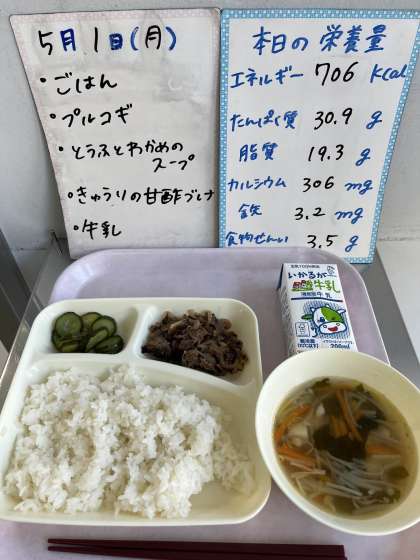 5月1日(月)
・ごはん
・プルコギ
・とうふとわかめの
スープ
・きゅうりの甘酢づけ
・牛乳
本日の栄養量
エネルギー 706 kcal
たんぱく質 30.9 g
脂質 19.3 g
カルシウム 306 mg
鉄 3.2 mg
食物せんい 3.5 g
いかるが
牛乳
200ml